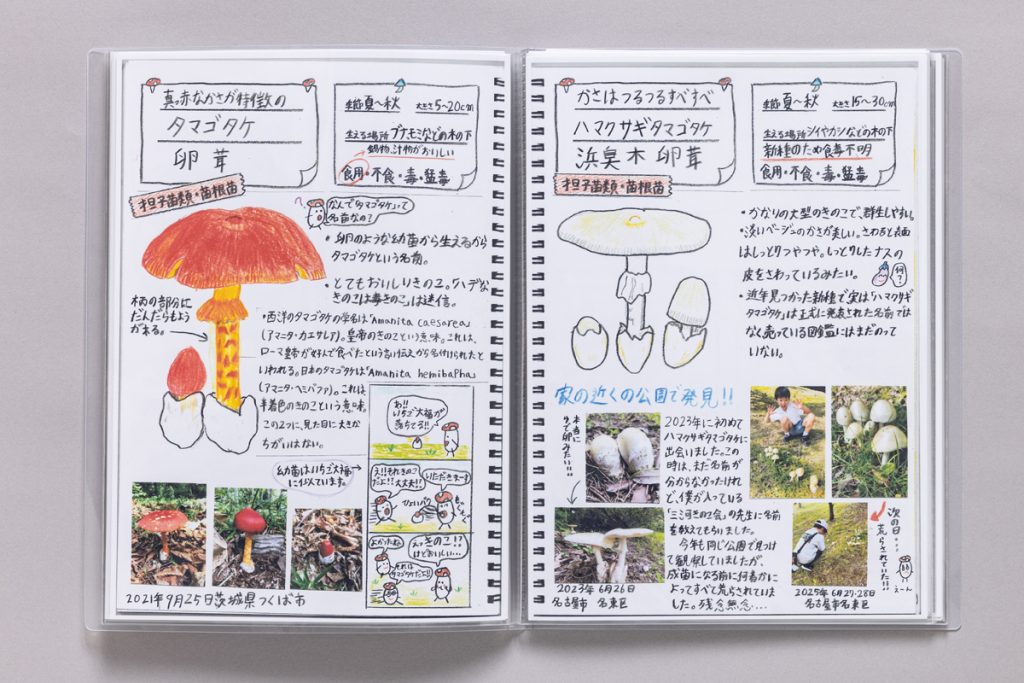 真っ赤なかさが特徴の
タマゴタケ
卵茸
季節 夏〜秋 大きさ 5〜20cm
生える場所 ブナやモミなどの木の下
鍋物、汁物がおいしい
食用・不食・毒・猛毒
担子菌類・菌根菌
なんで「タマゴタケ」って
名前なの?
・卵のような幼菌から生えるから
タマゴタケという名前。
・とてもおいしいきのこ。「ハデな
きのこは毒きのこ」は迷信。
柄の部分に
だんだらもよう
がある。
・西洋のタマゴタケの学名は「Amanita caesarea」
(アマニタ・カエサレア)。皇帝のきのこという意味。これは、
ローマ皇帝が好んで食べたという言い伝えから名付けられたと
いわれる。日本のタマゴタケは「Amanita hemibapha」
(アマニタ・ヘミバファ)。これは
半着色のきのこという意味。
この2つに、見た目に大きな
ちがいはない。
幼菌はいちご大福
に似ています。
わ!!
いちご大福が
落ちてる!!
え!!それきのこ
だよ!!大丈夫!!
いただきまーす
ひょいパク
よかったね
えっきのこ!?
けどおいしい…
それは
タマゴタケだよ!!
2021年9月25日茨城県つくば市
かさはつるつるすべすべ
ハマクサギタマゴタケ
浜臭木卵茸
季節 夏〜秋 大きさ 15〜30cm
生える場所 シイやカシなどの木の下
新種のため食毒不明
食用・不食・毒・猛毒
担子菌類・菌根菌
・かなりの大型のきのこで、群生しやすい。
・淡いベージュのかさが美しい。さわると表面
はしっとりつやつや。しっとりしたナスの
皮をさわっているみたい。
何?
・近年見つかった新種で実は「ハマクサギ
タマゴタケ」は正式に発表された名前では
なく売っている図鑑にはまだのって
いない。
家の近くの公園で発見!!
本当に
ゆで卵みたい!!
2023年に初めて
ハマクサギタマゴタケに
出会いました。この
時は、まだ名前が
分からなかったけれ
ど、僕が入っている
「三河きのこ会」の先生に名前
を教えてもらいました。
今年も同じ公園で見つけ
て観察していましたが、
成菌になる前に何者かに
よってすべて荒らされていま
した。残念無念…
次の日…
荒らされていた!!
えーん
2023年6月26日
名古屋市 名東区
2025年6月27・28日
名古屋市名東区